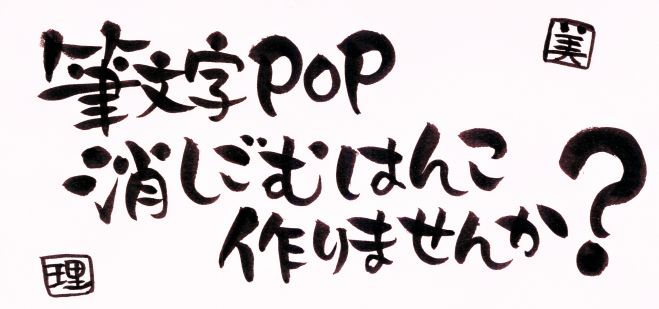 美
筆文字POP
消しごむはんこ
作りませんか?
理